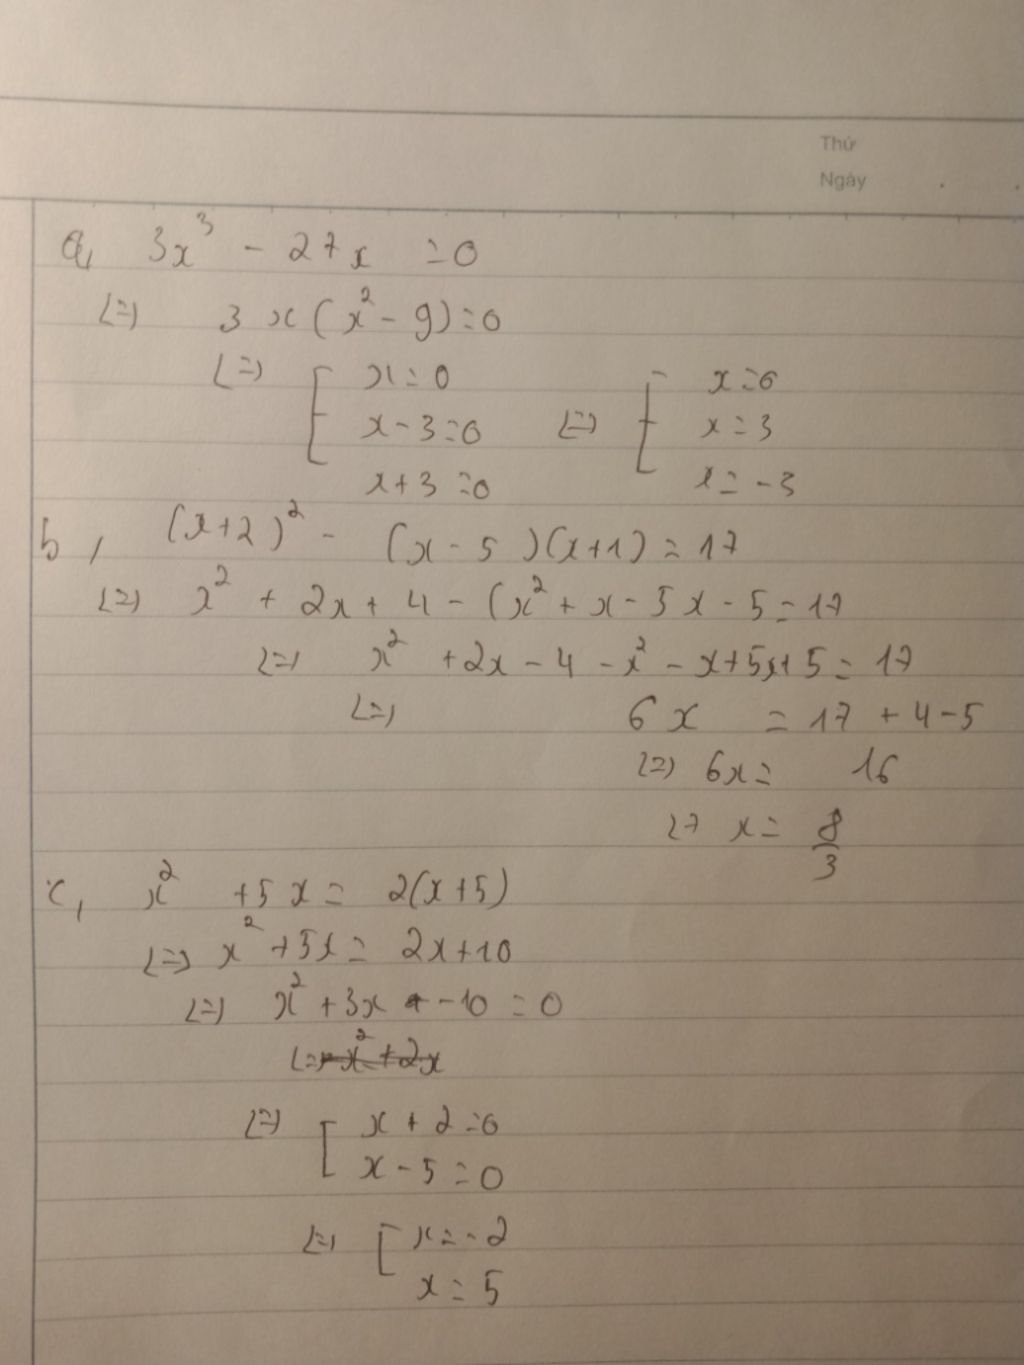 Thứ
Ngày
a, 3x³ - 27x = 0
<=> 3x(x² - 9) = 0
<=> [ x = 0 <=> [ x = 0
x - 3 = 0 x = 3
x + 3 = 0 x = -3
b, (x+2)² - (x - 5)(x+1) = 17
<=> x² + 2x + 4 - (x² + x - 5x - 5 = 17
<=> x² + 2x - 4 - x² - x + 5x + 5 = 17
<=> 6x = 17 + 4 - 5
<=> 6x = 16
<=> x = 8/3
c, x² + 5x = 2(x+5)
<=> x² + 5x = 2x + 10
<=> x² + 3x - 10 = 0
<=> x² + 2x
<=> [ x + 2 = 0
x - 5 = 0
<=> [ x = -2
x = 5